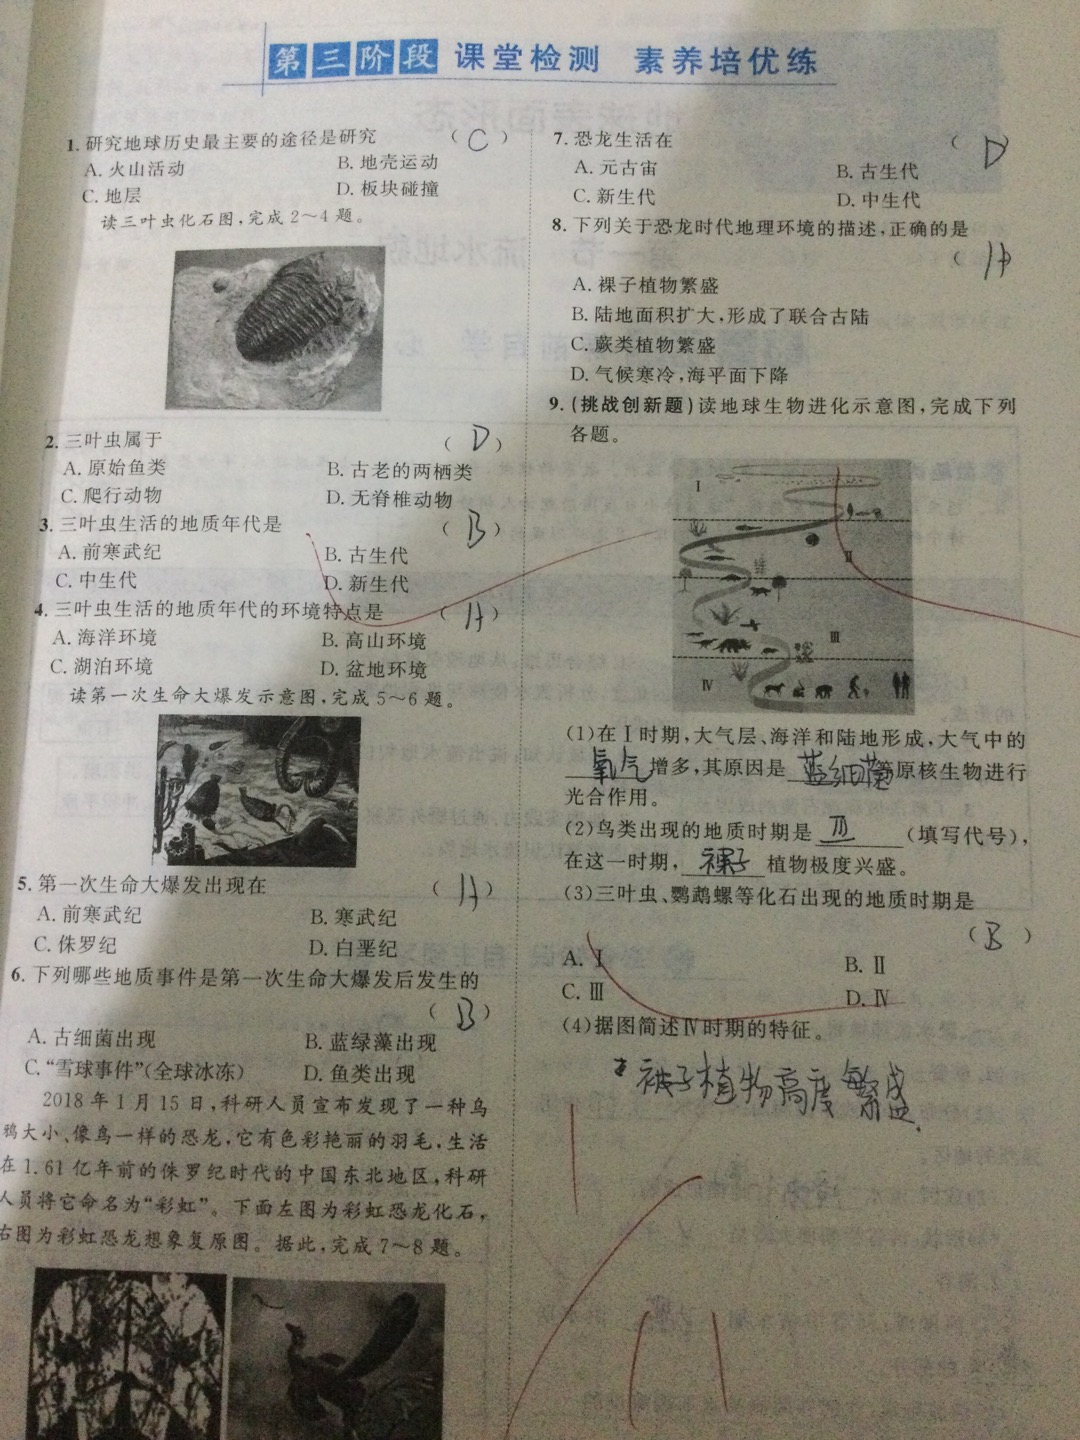 第三阶段 课堂检测 素养培优练
1. 研究地球历史最主要的途径是研究 ( C )
A. 火山活动 B. 地壳运动
C. 地层 D. 板块碰撞
读三叶虫化石图,完成2~4题。
2. 三叶虫属于 ( D )
A. 原始鱼类 B. 古老的两栖类
C. 爬行动物 D. 无脊椎动物
3. 三叶虫生活的地质年代是 ( B )
A. 前寒武纪 B. 古生代
C. 中生代 D. 新生代
4. 三叶虫生活的地质年代的环境特点是 ( A )
A. 海洋环境 B. 高山环境
C. 湖泊环境 D. 盆地环境
读第一次生命大爆发示意图,完成5~6题。
5. 第一次生命大爆发出现在 ( A )
A. 前寒武纪 B. 寒武纪
C. 侏罗纪 D. 白垩纪
6. 下列哪些地质事件是第一次生命大爆发后发生的
( B )
A. 古细菌出现 B. 蓝绿藻出现
C. “雪球事件”(全球冰冻) D. 鱼类出现
2018年1月15日,科研人员宣布发现了一种乌
鸦大小、像鸟一样的恐龙,它有色彩艳丽的羽毛,生活
在1.61亿年前的侏罗纪时代的中国东北地区,科研
人员将它命名为“彩虹”。下面左图为彩虹恐龙化石,
右图为彩虹恐龙想象复原图。据此,完成7~8题。
7. 恐龙生活在 ( D )
A. 元古宙 B. 古生代
C. 新生代 D. 中生代
8. 下列关于恐龙时代地理环境的描述,正确的是
( A )
A. 裸子植物繁盛
B. 陆地面积扩大,形成了联合古陆
C. 蕨类植物繁盛
D. 气候寒冷,海平面下降
9. (挑战创新题)读地球生物进化示意图,完成下列
各题。
Ⅰ
Ⅱ
Ⅲ
Ⅳ
(1)在Ⅰ时期,大气层、海洋和陆地形成,大气中的
氧气增多,其原因是蓝细菌等原核生物进行
光合作用。
(2)鸟类出现的地质时期是 Ⅲ (填写代号),
在这一时期, 裸子 植物极度兴盛。
(3)三叶虫、鹦鹉螺等化石出现的地质时期是
( B )
A. Ⅰ B. Ⅱ
C. Ⅲ D. Ⅳ
(4)据图简述Ⅳ时期的特征。
被子植物高度繁盛.